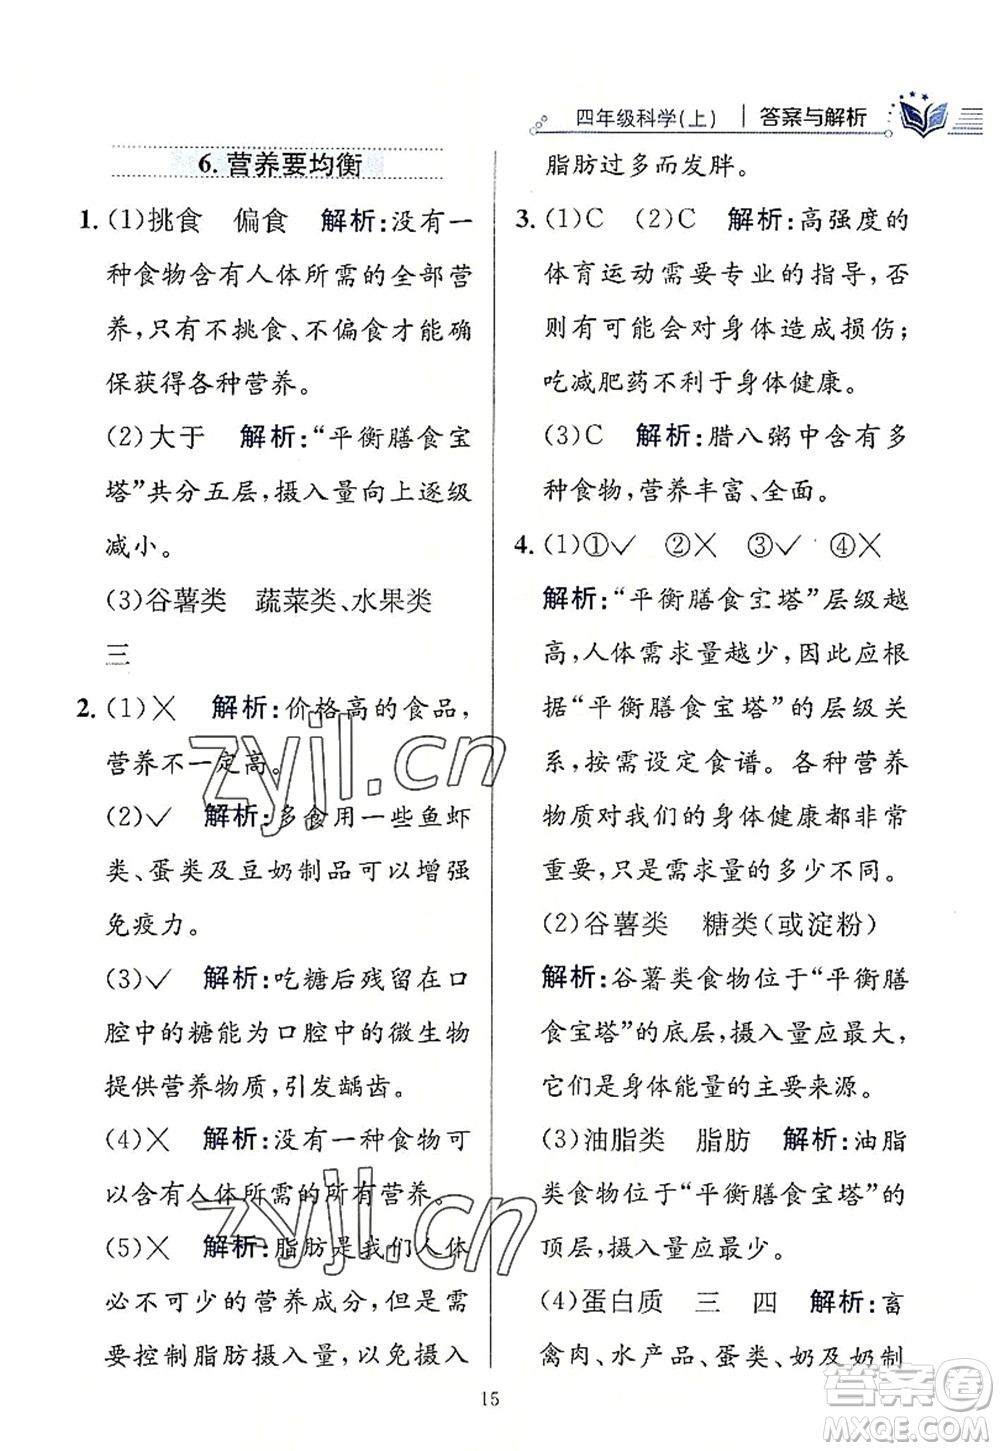 四年级科学(上) 答案与解析
6. 营养要均衡
1. (1)挑食 偏食 解析:没有一
种食物含有人体所需的全部营
养,只有不挑食、不偏食才能确
保获得各种营养。
(2)大于 解析:“平衡膳食宝
塔”共分五层,摄入量向上逐级
减小。
(3)谷薯类 蔬菜类、水果类
三
2. (1)╳ 解析:价格高的食品,
营养不一定高。
(2)✓ 解析:多食用一些鱼虾
类、蛋类及豆奶制品可以增强
免疫力。
(3)✓ 解析:吃糖后残留在口
腔中的糖能为口腔中的微生物
提供营养物质,引发龋齿。
(4)╳ 解析:没有一种食物可
以含有人体所需的所有营养。
(5)╳ 解析:脂肪是我们人体
必不可少的营养成分,但是需
要控制脂肪摄入量,以免摄入
脂肪过多而发胖。
3. (1)C (2)C 解析:高强度的
体育运动需要专业的指导,否
则有可能会对身体造成损伤;
吃减肥药不利于身体健康。
(3)C 解析:腊八粥中含有多
种食物,营养丰富、全面。
4. (1)①✓ ②╳ ③✓ ④╳
解析:“平衡膳食宝塔”层级越
高,人体需求量越少,因此应根
据“平衡膳食宝塔”的层级关
系,按需设定食谱。各种营养
物质对我们的身体健康都非常
重要,只是需求量的多少不同。
(2)谷薯类 糖类(或淀粉)
解析:谷薯类食物位于“平衡膳
食宝塔”的底层,摄入量应最大,
它们是身体能量的主要来源。
(3)油脂类 脂肪 解析:油脂
类食物位于“平衡膳食宝塔”的
顶层,摄入量应最少。
(4)蛋白质 三 四 解析:畜
禽肉、水产品、蛋类、奶及奶制
15
zyjl.cn
zyjl.cn
答案圈
MXQE.COM